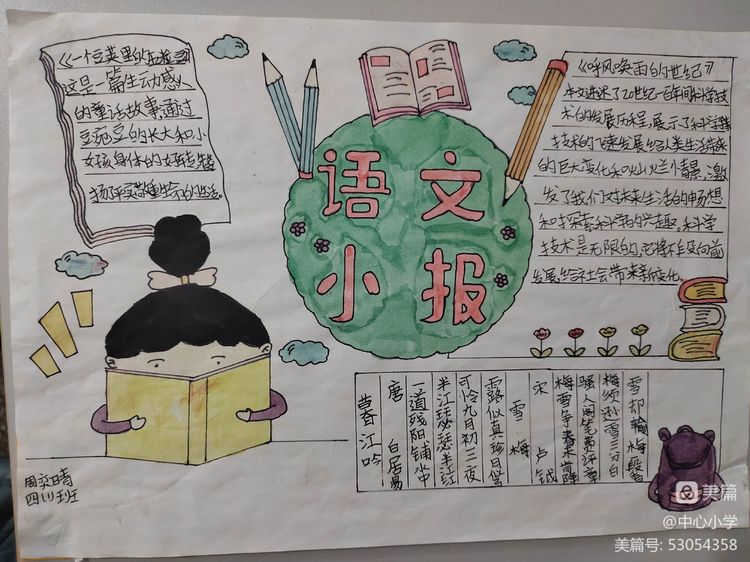 《一个豆荚里的五粒豆》
这是一篇生动感人
的童话故事,通过
豌豆的长大和小
女孩身体的
语文
小报
《呼风唤雨的世纪》
本文讲述了20世纪一百年间科学技
术的发展历程,展示了科学
技术的飞速发展给人类生活带来
的巨大变化和灿烂前景,激
发了我们对未来生活的畅想
和对探索科学的兴趣,科学
技术是无限的,它将不断向前
发展,给社会带来新变化.
暮江吟
唐 白居易
一道残阳铺水中
半江瑟瑟半江红
可怜九月初三夜
露似真珍
雪梅
宋 卢钺
梅雪争春未肯降
骚人阁笔费评章
梅须逊雪三分白
雪却输梅一段香
四(1)班
美篇
@中心小学
美篇号: 53054358